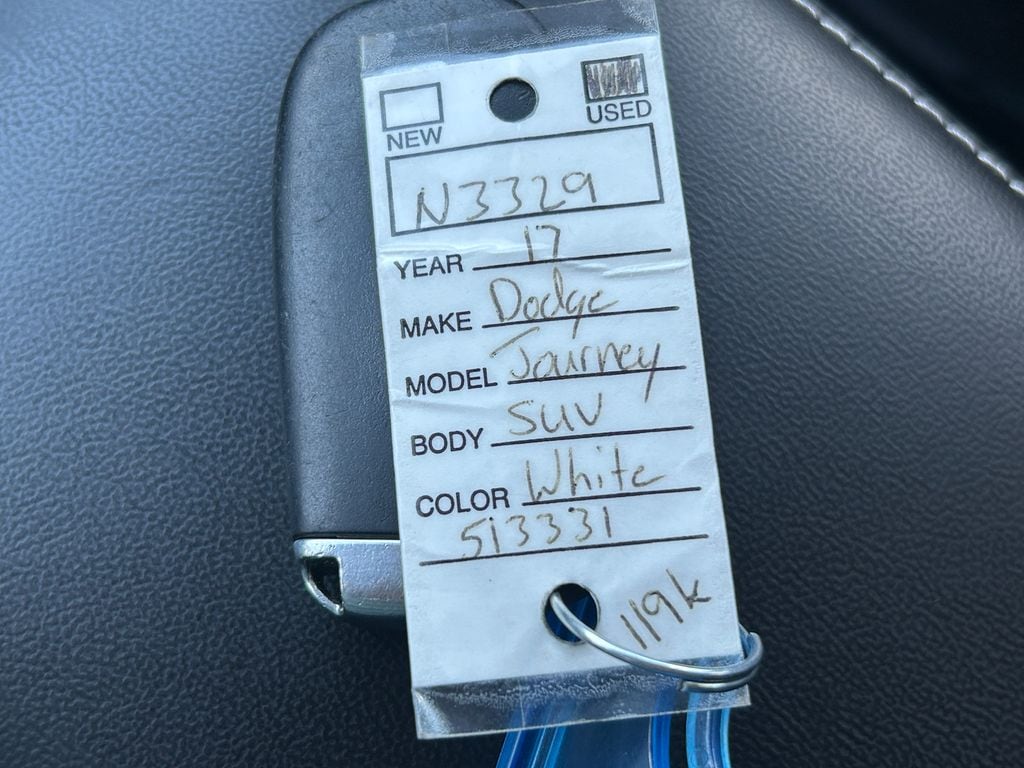 NEW USED
N3329
YEAR 17
MAKE Dodge
MODEL Journey
BODY SUV
COLOR White
513331
119k